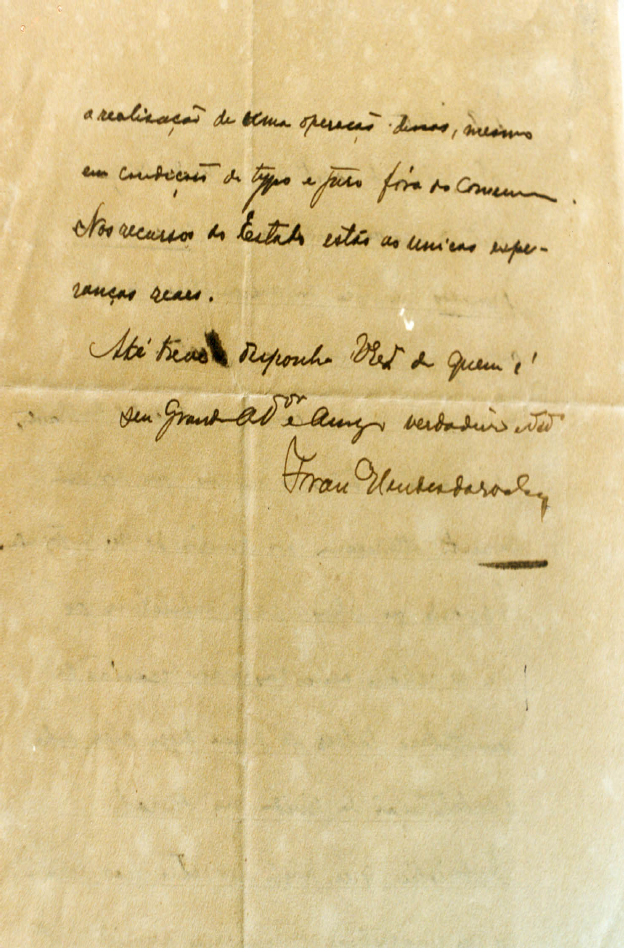 a realisação de uma operação dessas, mesmo
em condições de typo e juro fóra do Commum.
Nos recursos do Estado estão as unicas espe-
ranças reaes.
Até breve disponha VEx de quem é
seu Grande Ad^dor e Amigo verdadeiro
Ivan